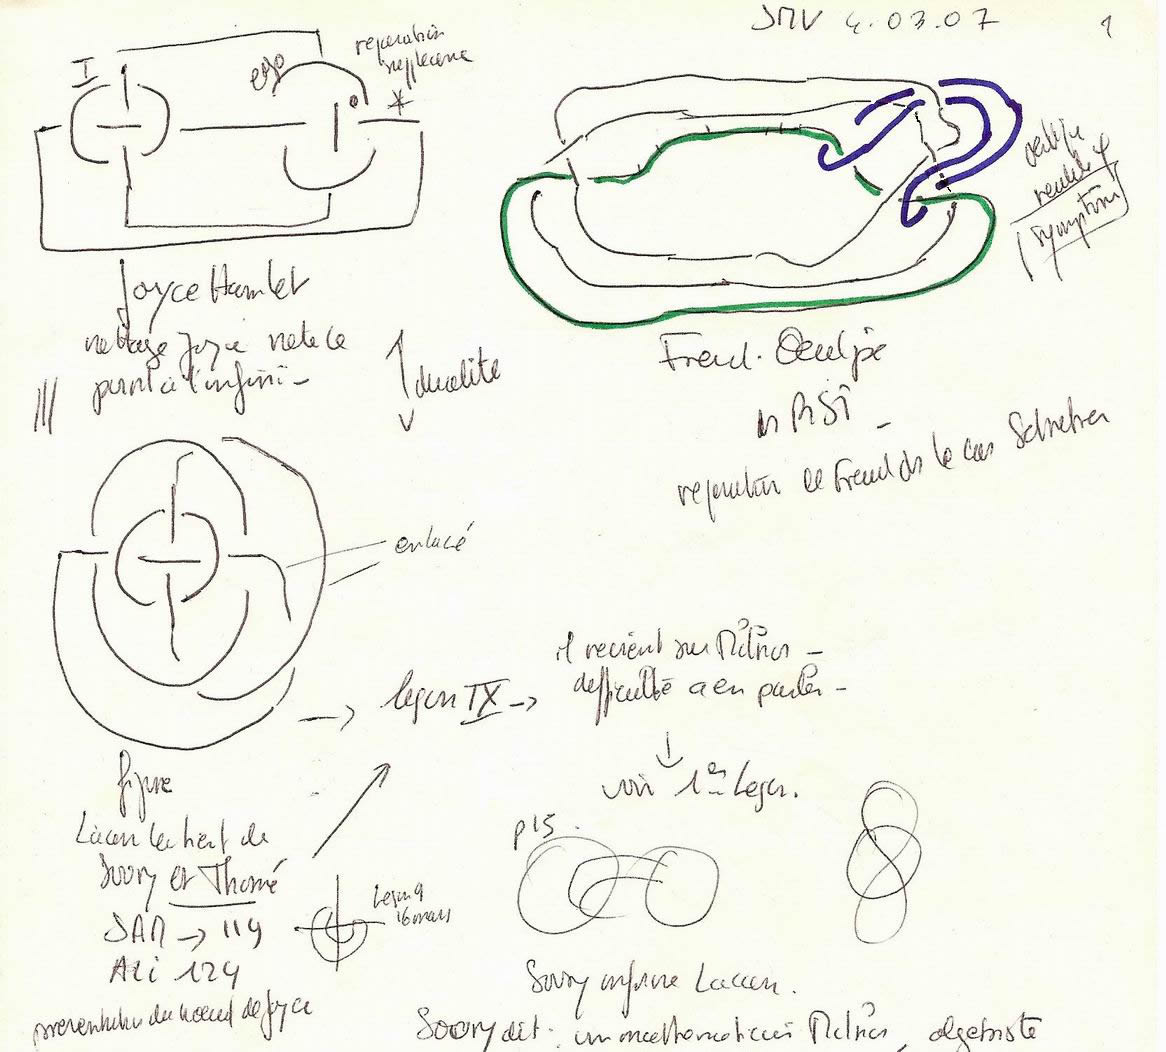 JMV 4.03.07
1
I
ego
reparation
Joyce Hamlet
nouage Joyce note le
point à l'infini -
dualité
Freud. Oedipe
ds RSI
reparation de Freud ds le cas Schreber
oedipe
realité ψ
symptôme
enlacé
leçon IX ->
il revient sur Milnor -
difficulté a en parler -
voir 1ere Leçon.
figure
Lacan la tient de
Soury et Thomé
119
ALI 124
presentation du noeud de Joyce
Leçon 9
16 mars
p15.
Soury informe Lacan.
Soury dit: un mathematicien Milnor, algebriste